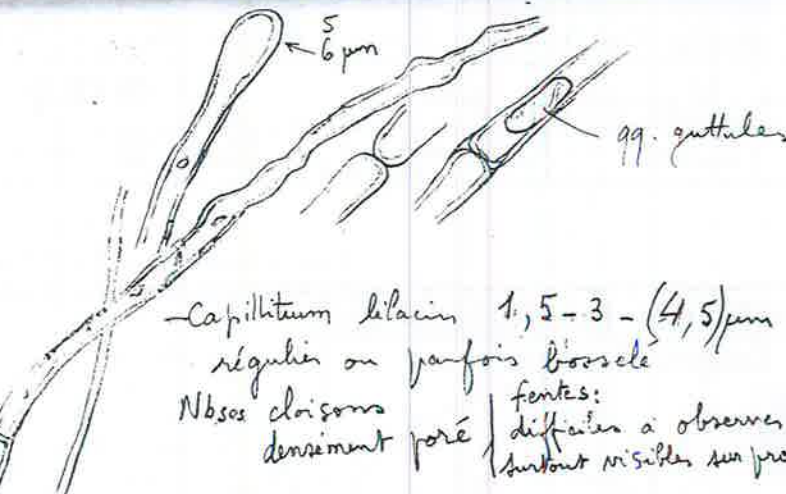 5
6 µm
qq. guttules
- Capillitium lilacin 1,5 - 3 - (4,5) µm
régulier ou parfois bosselé
Nbses cloisons
densément poré
fentes:
difficiles à observer
surtout visibles sur